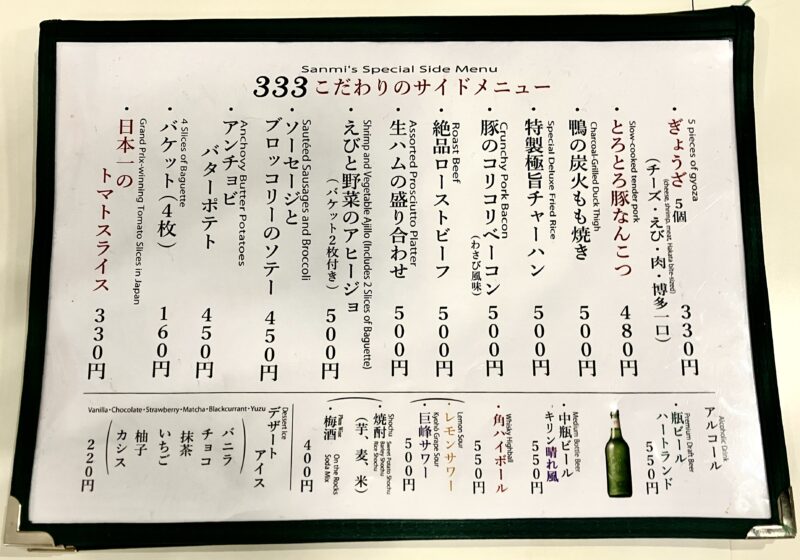 Sanmi's Special Side Menu
333こだわりのサイドメニュー
5 pieces of gyoza
・ぎょうざ 5個
(cheese, shrimp, meat, Hakata bite-sized)
(チーズ・えび・肉・博多一口)
330円
Slow-cooked tender pork
・とろとろ豚なんこつ
480円
Charcoal-Grilled Duck Thigh
・鴨の炭火もも焼き
500円
Special Deluxe Fried Rice
・特製極旨チャーハン
500円
Crunchy Pork Bacon
・豚のコリコリベーコン
(わさび風味)
500円
Roast Beef
・絶品ローストビーフ
500円
Assorted Prosciutto Platter
・生ハムの盛り合わせ
500円
Shrimp and Vegetable Ajillo (Includes 2 Slices of Baguette)
・えびと野菜のアヒージョ
(バケット2枚付き)
500円
Sautéed Sausages and Broccoli
・ソーセージと
ブロッコリーのソテー
450円
Anchovy Butter Potatoes
・アンチョビ
バターポテト
450円
4 Slices of Baguette
・バケット(4枚)
160円
Grand Prix-winning Tomato Slices in Japan
・日本一の
トマトスライス
330円
Alcoholic Drink
アルコール
Premium Draft Beer
・瓶ビール
ハートランド
550円
Medium Bottle Beer
・中瓶ビール
キリン晴れ風
550円
Whisky Highball
・角ハイボール
550円
Lemon Sour
・レモンサワー
Kyoho Grape Sour
・巨峰サワー
500円
Shochu Sweet Potato Shochu
Barley Shochu
Rice Shochu
・焼酎
(芋、麦、米)
Plum Wine
・梅酒
On the Rocks
Soda Mix
400円
Dessert Ice
デザート アイス
Vanilla・Chocolate・Strawberry・Matcha・Blackcurrant・Yuzu
(バニラ
チョコ
抹茶
いちご
柚子
カシス)
220円